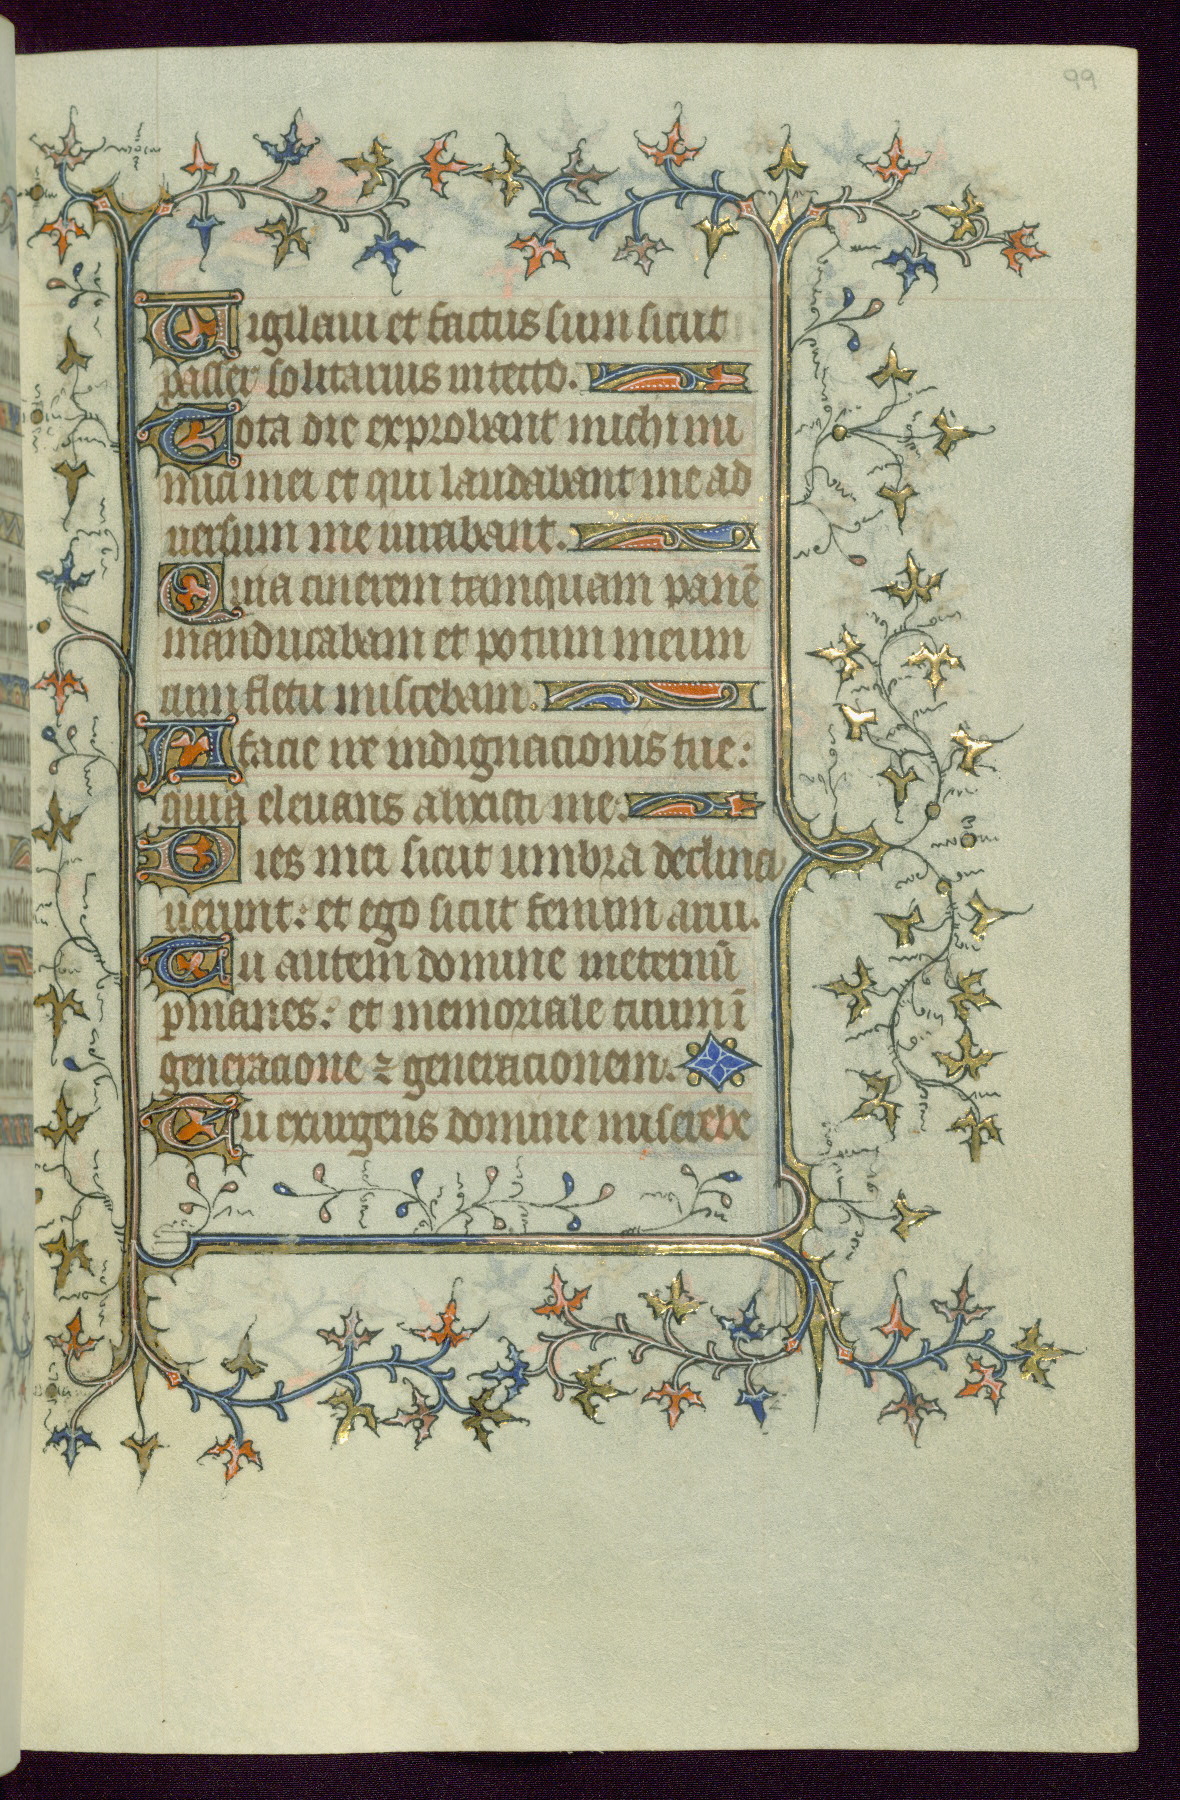 99
Vigilaui et factus sum sicut
passer solitarius in tecto.
Tota die exprobrant michi ini
mici mei et qui laudabant me ad
uersum me iurabant.
Quia cinerem tamquam panē
manducabam et potum meum
cum fletu miscebam.
A facie ire indignacionis tue:
quia eleuans alixisti me:
Dies mei sicut umbra declina
uerunt: et ego sicut fenum arui.
Tu autem domine in eternū
pmanes: et memoriale tuum ī
generacione ⁊ generacionem.
Tu exurgens domine miserebe